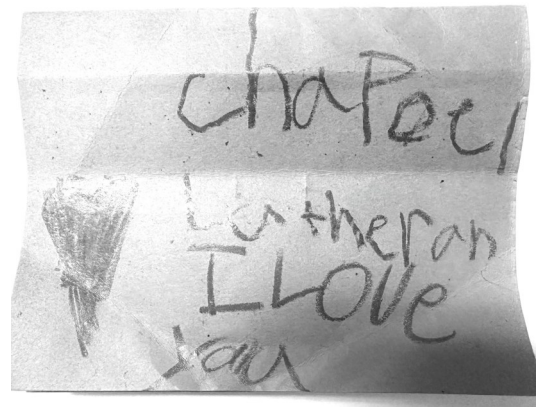 chaPoel
Lutheran
I LOVe
you